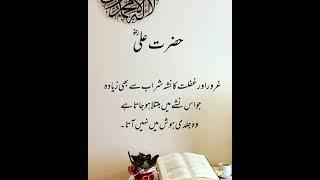 حضرت علیؓ
غرور اور غفلت کا نشہ شراب سے بھی زیادہ
جو اس نشے میں مبتلا ہو جاتا ہے
وہ جلدی ہوش میں نہیں آتا۔